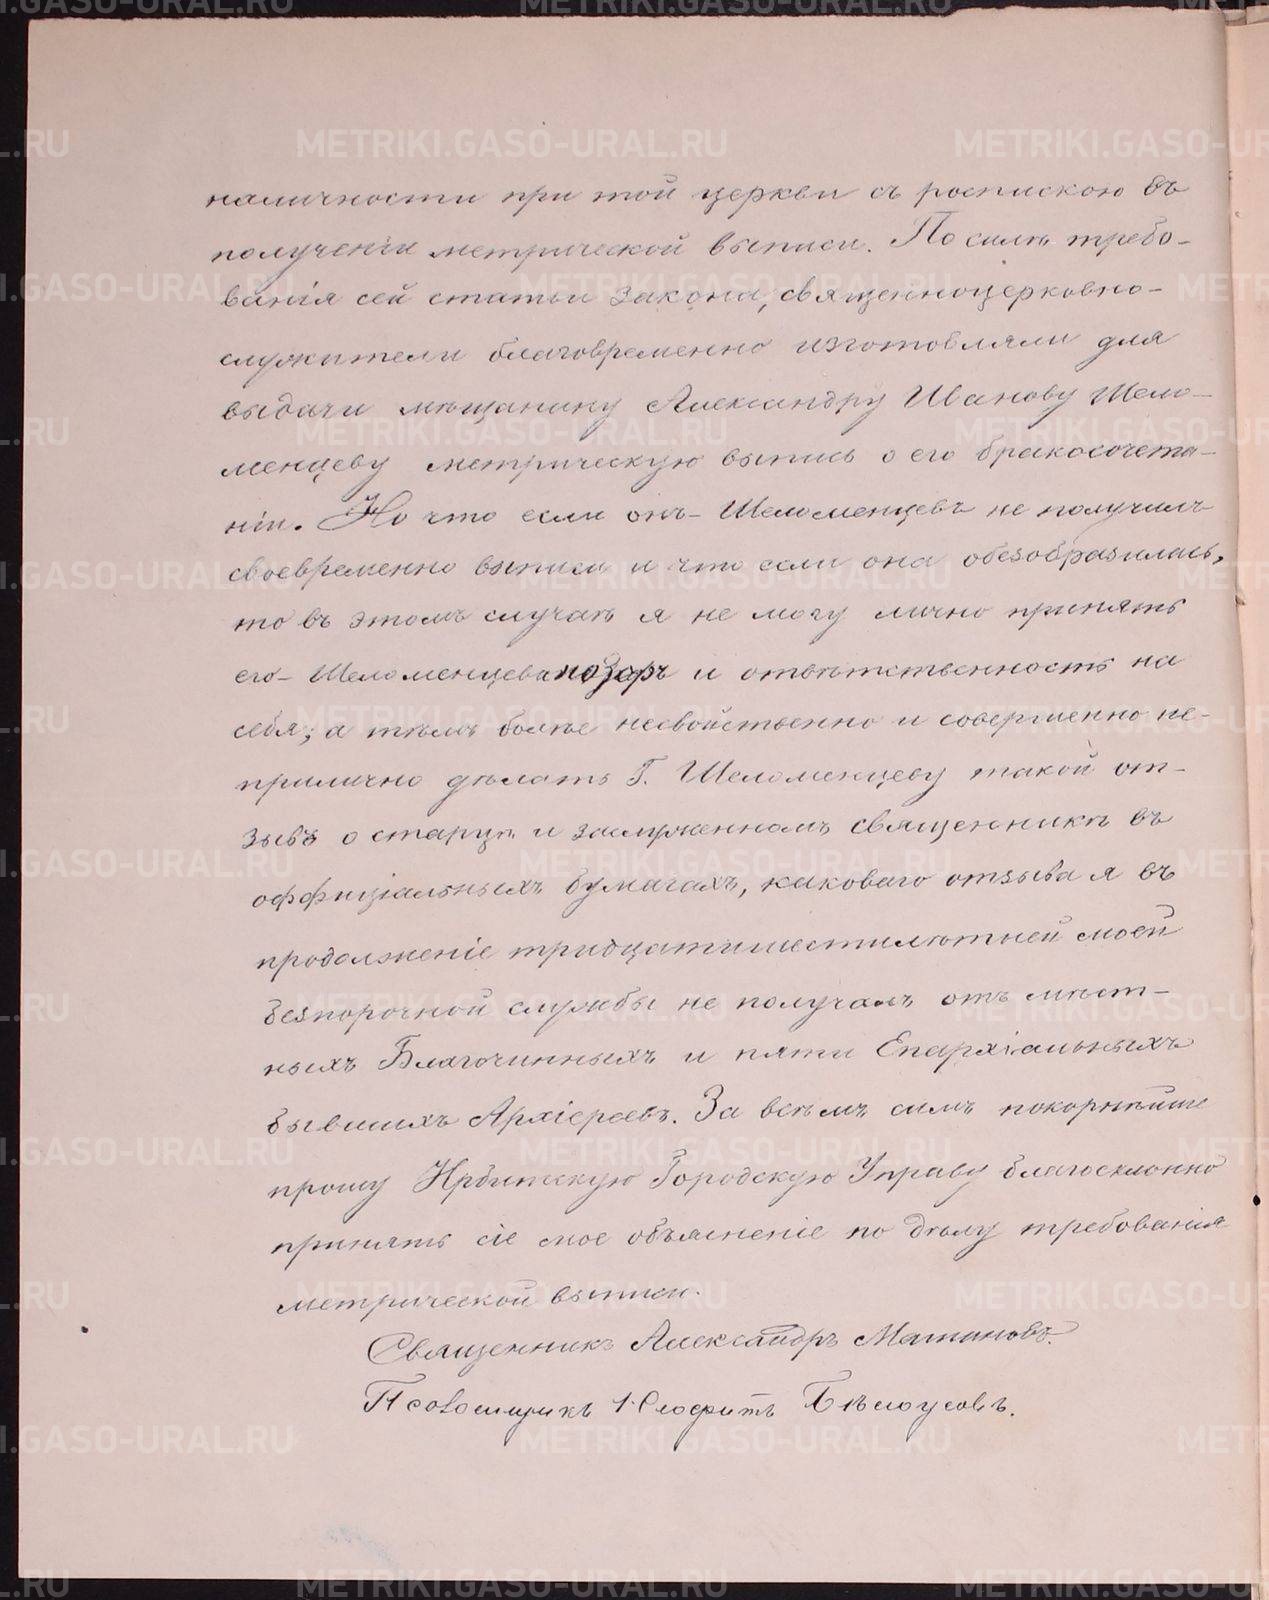 наличности при той церкви съ роспискою въ
полученіи метрической выписи. По силѣ требо-
ванія сей статьи закона, священноцерковно-
служители благовременно изготовляли для
выдачи мѣщанину Александру Иванову Шело-
менцеву метрическую выпись о его бракосочета-
ніи. Но что если онъ - Шеломенцевъ не получилъ
своевременно выписи и что если она обезобразилась,
то въ этомъ случаѣ я не могу лично принять
его - Шеломенцева позоръ и отвѣтственность на
себя; а тѣмъ болѣе несвойственно и совершенно не-
прилично дѣлать Г. Шеломенцеву такой от-
зывъ о старцѣ и заслуженномъ священникѣ въ
оффиціальныхъ бумагахъ, каковаго отзыва я въ
продолженіе тридцатишестилѣтней моей
безпорочной службы не получалъ отъ мѣст-
ныхъ Благочинныхъ и пяти Епархіальныхъ
бывшихъ Архіереевъ. За всѣмъ симъ покорнѣйше
прошу Ирбитскую Городскую Управу благосклонно
принять сіе мое объясненіе по дѣлу требованія
метрической выписи.
Священникъ Александръ
Псаломщикъ Бѣлоусовъ.
METRIKI.GASO-URAL.RU